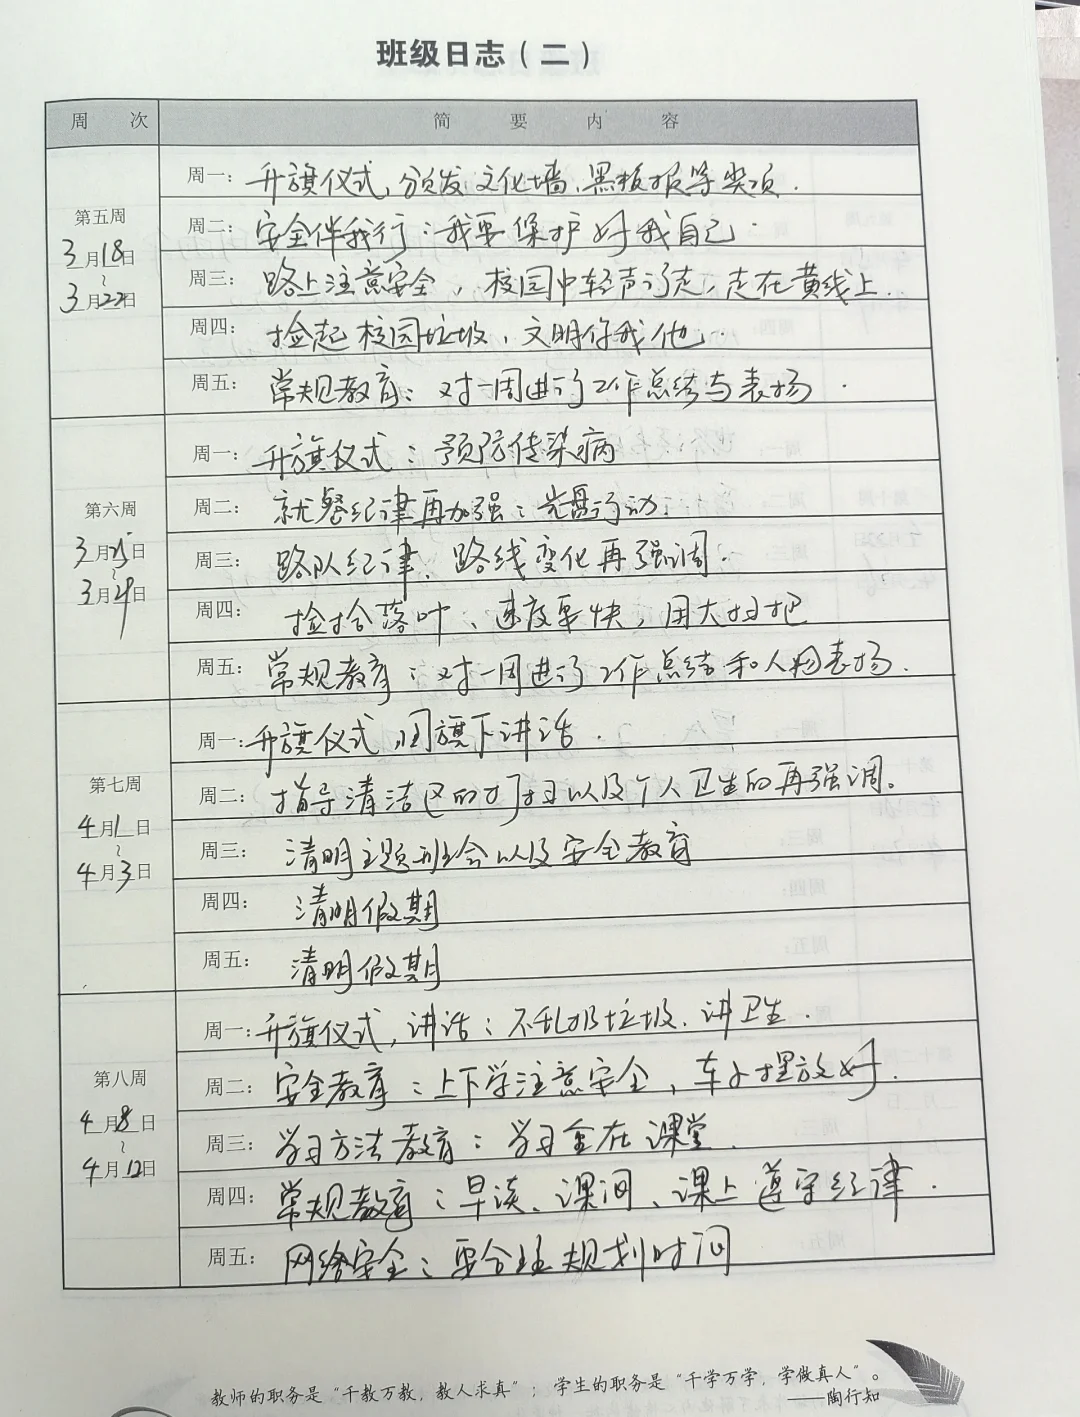 班级日志（二）
周 次 简要内容
周一：升旗仪式，颁发文化墙、黑板报等奖项．
周二：安全伴我行：我要保护好我自己．
第五周
3月18日
~
3月22日
周三：路上注意安全，校园中轻声行走，走在黄线上．
周四：捡起校园垃圾，文明你我他．
周五：常规教育：对一周进行工作总结与表扬．
周一：升旗仪式：预防传染病
周二：就餐纪律再加强：光盘行动．
第六周
3月25日
~
3月29日
周三：路队纪律、路线变化再强调．
周四：捡拾落叶、速度要快，用大扫把
周五：常规教育：对一周进行工作总结和人物表扬．
周一：升旗仪式，国旗下讲话．
第七周
4月1日
~
4月3日
周二：指导清洁区的打扫以及个人卫生的再强调。
周三：清明主题班会以及安全教育
周四：清明假期
周五：清明假期
周一：升旗仪式，讲话：不乱扔垃圾．讲卫生．
第八周
4月8日
~
4月12日
周二：安全教育：上下学注意安全，车子摆放好．
周三：学习方法教育：学习全在课堂．
周四：常规教育：早读、课间、课上遵守纪律．
周五：网络安全：要合理规划时间
教师的职务是“千教万教，教人求真”；学生的职务是“千学万学，学做真人”。
——陶行知